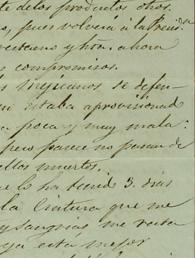 te de los productos otros.
o, pues volverá á la
y hta. ahora
s compromisos.
os mejicanos se defen-
estaba aprovisionad
poca y muy mala
pero parece no pasan de
ellos muertos.
e lo ha tenido 3 dias
la cintura que me
y sangrias me resta
ya esta mejor